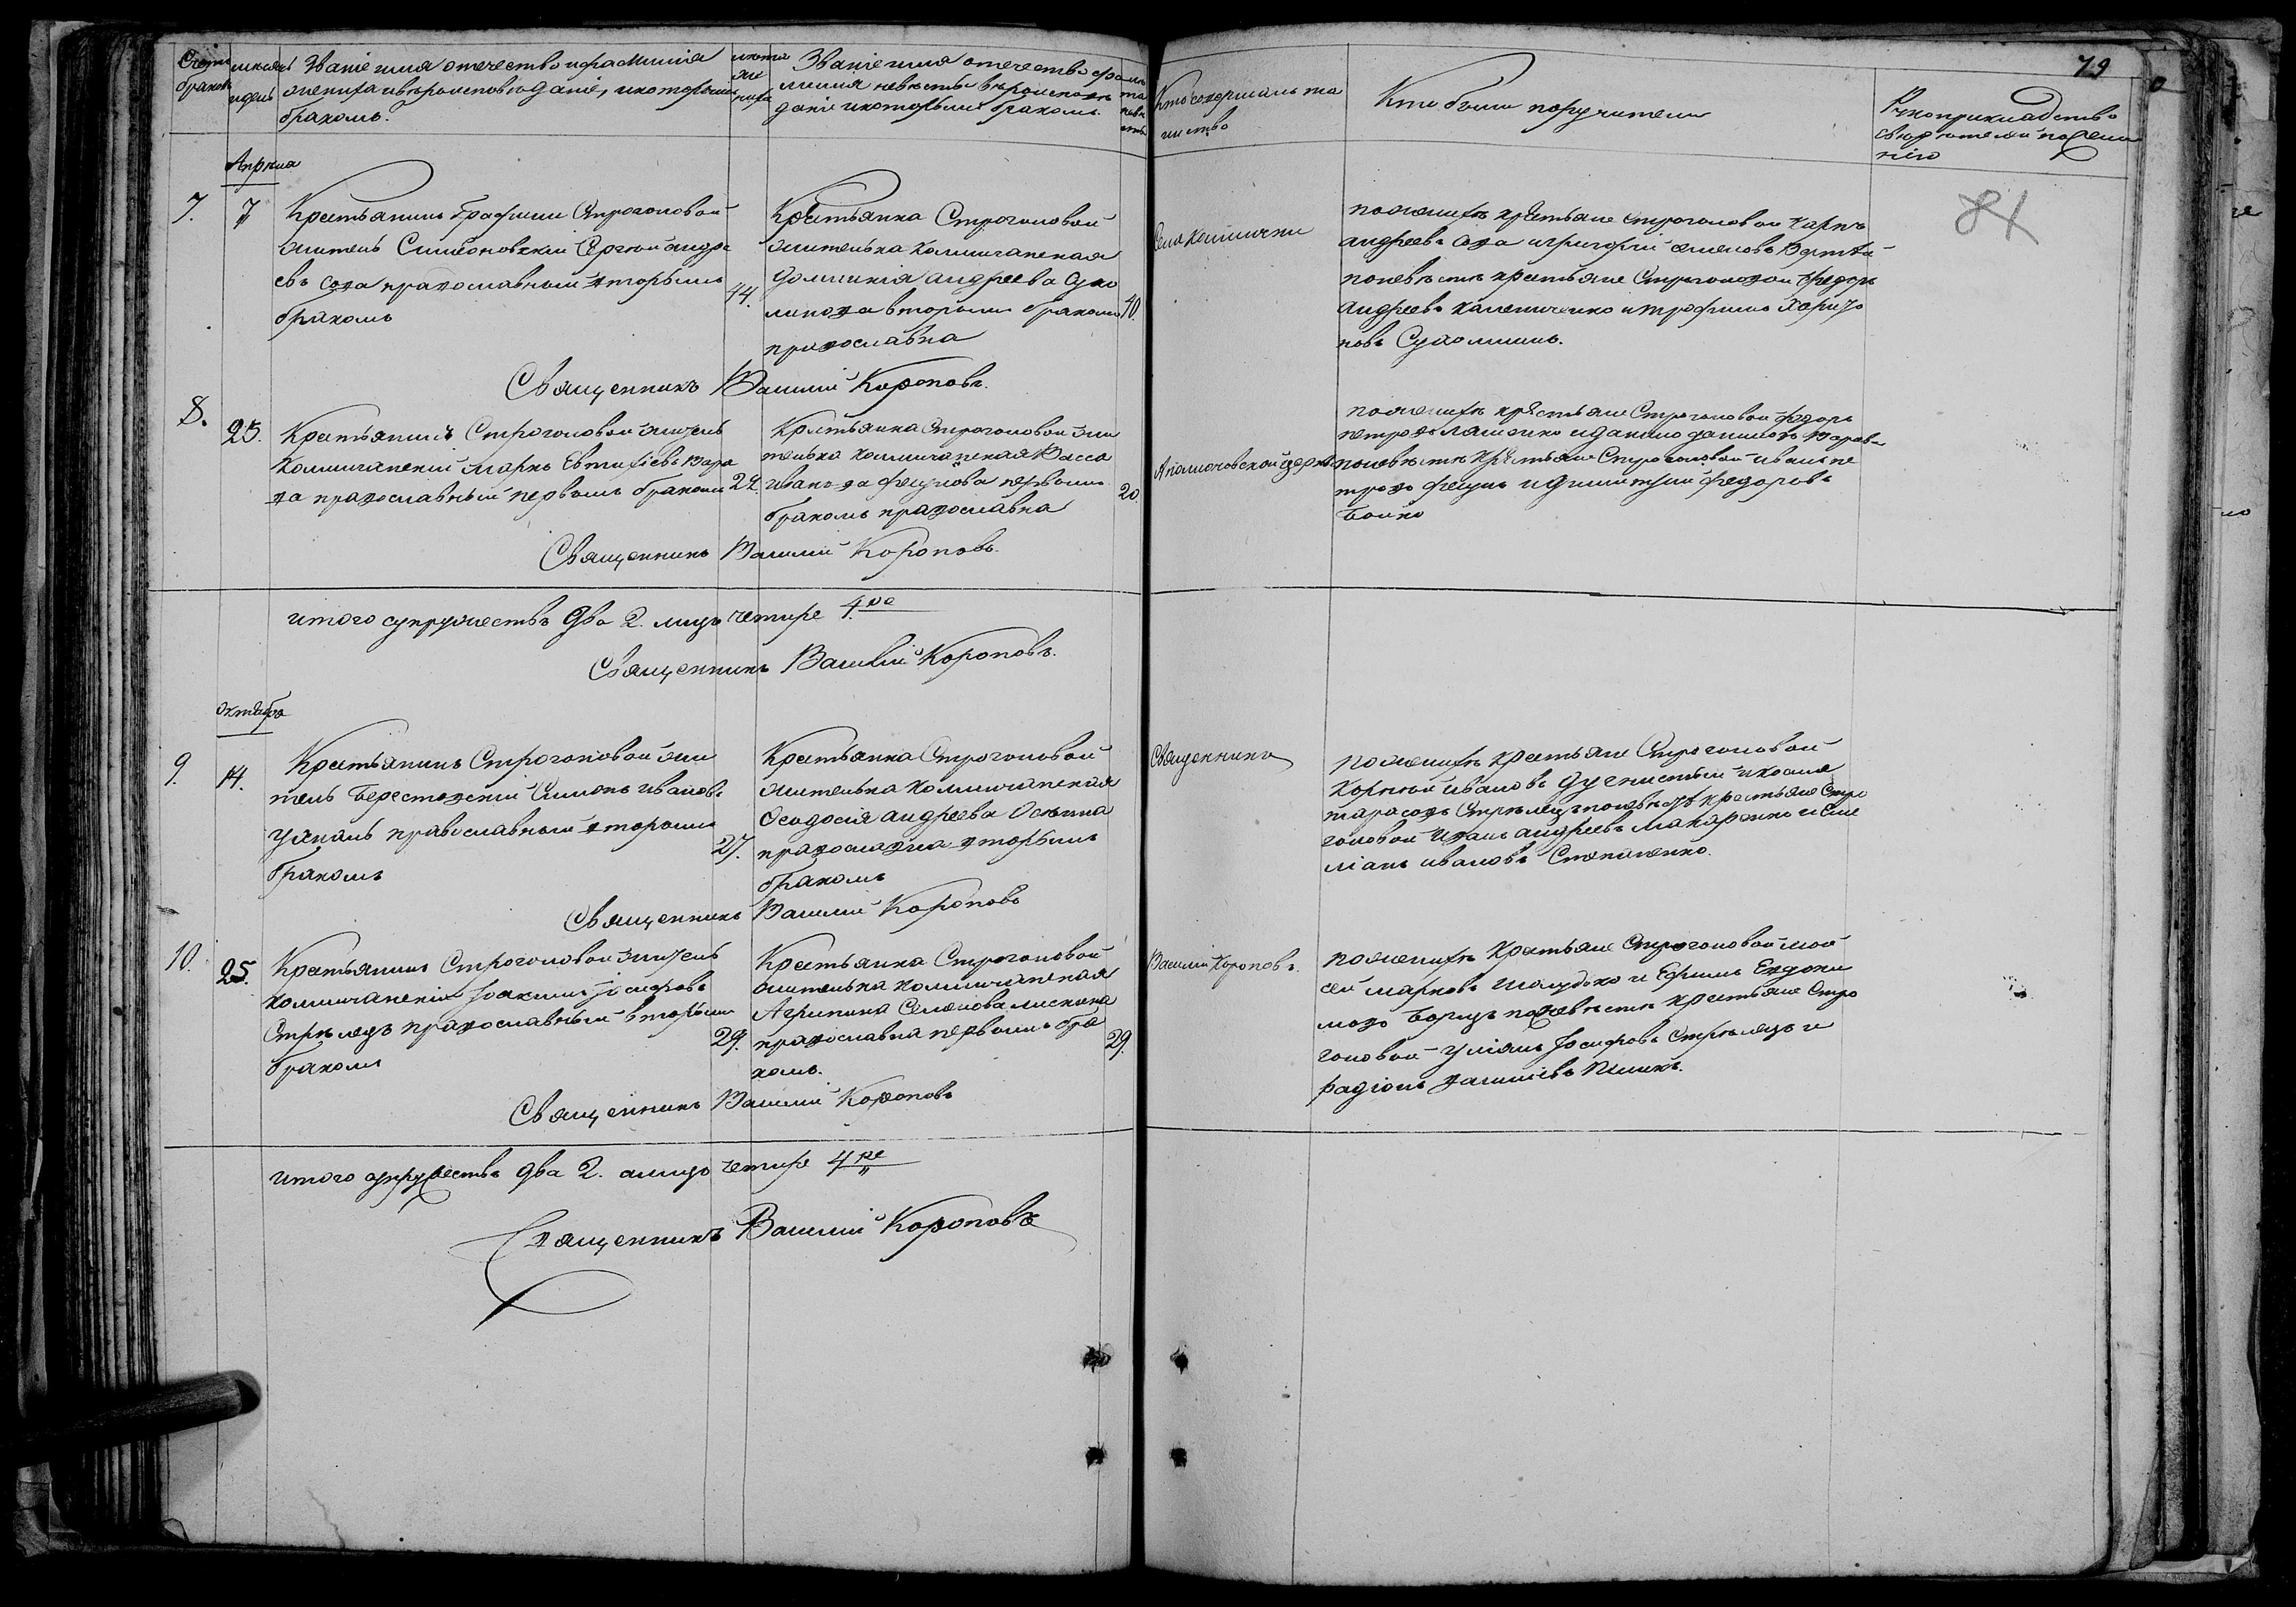 Счетъ браковъ
месяцъ и день
Званіе имя отечество и фамиліа
жениха и вероисповеданіе, и которымъ
бракомъ?
лета жениха
Званіе имя отечество и фами
лиия невесты вероиспове
даніе и которымъ бракомъ
лета невесты
Кто совершалъ та
инство
Кто были поручители
Рукоприкладство
свидетелей по жела
нію
79
84
Апреля
7.
7
Крестьянинъ Графини Строгоновой
житель Симбоновскій Сергей андре
евъ Сова православный вторымъ
бракомъ
44.
Крестьянка Строгоновой
жителька Колычанская
Домникія андреева Сухо
линова вторымъ бракомъ
православна
40.
Села Колычки
по женихе крестьяне Строгоновой Карпъ
андреевъ Сова и григорій семеновъ
по невесте крестьяне Строгоновой Федоръ
андреевъ Калениченко и трофимъ Харито
новъ Сухолинъ.
Священникъ Василій Короповъ.
8.
25.
Крестьянинъ Строгоновой житель
Колычанскій Маркъ Евтихіевъ Вара
ва православный первымъ бракомъ
22.
Крестьянка Строгоновой жи
телька Колычанская Васса
Иванова Фещунова первымъ
бракомъ православна
20.
церкви
по женихе крестьяне Строгоновой Федоръ
петровъ Ляшенко и данило даниловъ Варава
по невесте крестьяне Строгоновой Иванъ пе
тровъ Фещунъ и димитрій Федоровъ
Бойко
Священникъ Василій Короповъ.
итого супружествъ два 2. лицъ четире 4.ре
Священникъ Василій Короповъ.
октября
9.
14.
Крестьянинъ Строгоновой жи
тель Берестовскій Симонъ Ивановъ
Цякалъ православный вторымъ
бракомъ
27.
Крестьянка Строгоновой
жителька Колычанская
Феодосія андреева Осыпна
православна вторымъ
бракомъ
Священникъ
по женихе крестьяне Строгоновой
Корней Ивановъ и козма
тарасовъ Стрелецъ по невесте крестьяне Стро
гоновой Иванъ андреевъ Макаренко и Еме
ліанъ Ивановъ Степаненко.
Священникъ Василій Короповъ
10.
25.
Крестьянинъ Строгоновой житель
Колычанскій Іоакимъ Іосифовъ
Стрелецъ православный вторымъ
бракомъ
29.
Крестьянка Строгоновой
жителька Колычанская
Агрипина Семенова Лискина
православна первымъ бра
комъ.
29.
Василій Короповъ.
по женихе Крестьяне Строгоновой мои
сей Марковъ Шолудько и Ефимъ Евдоки
мовъ Борецъ по невесте крестьяне Стро
гоновой Уліянъ Іосифовъ Стрелецъ и
радіонъ
Священникъ Василій Короповъ
итого супружествъ два 2. а лицъ четире 4 ре
Священникъ Василій Короповъ